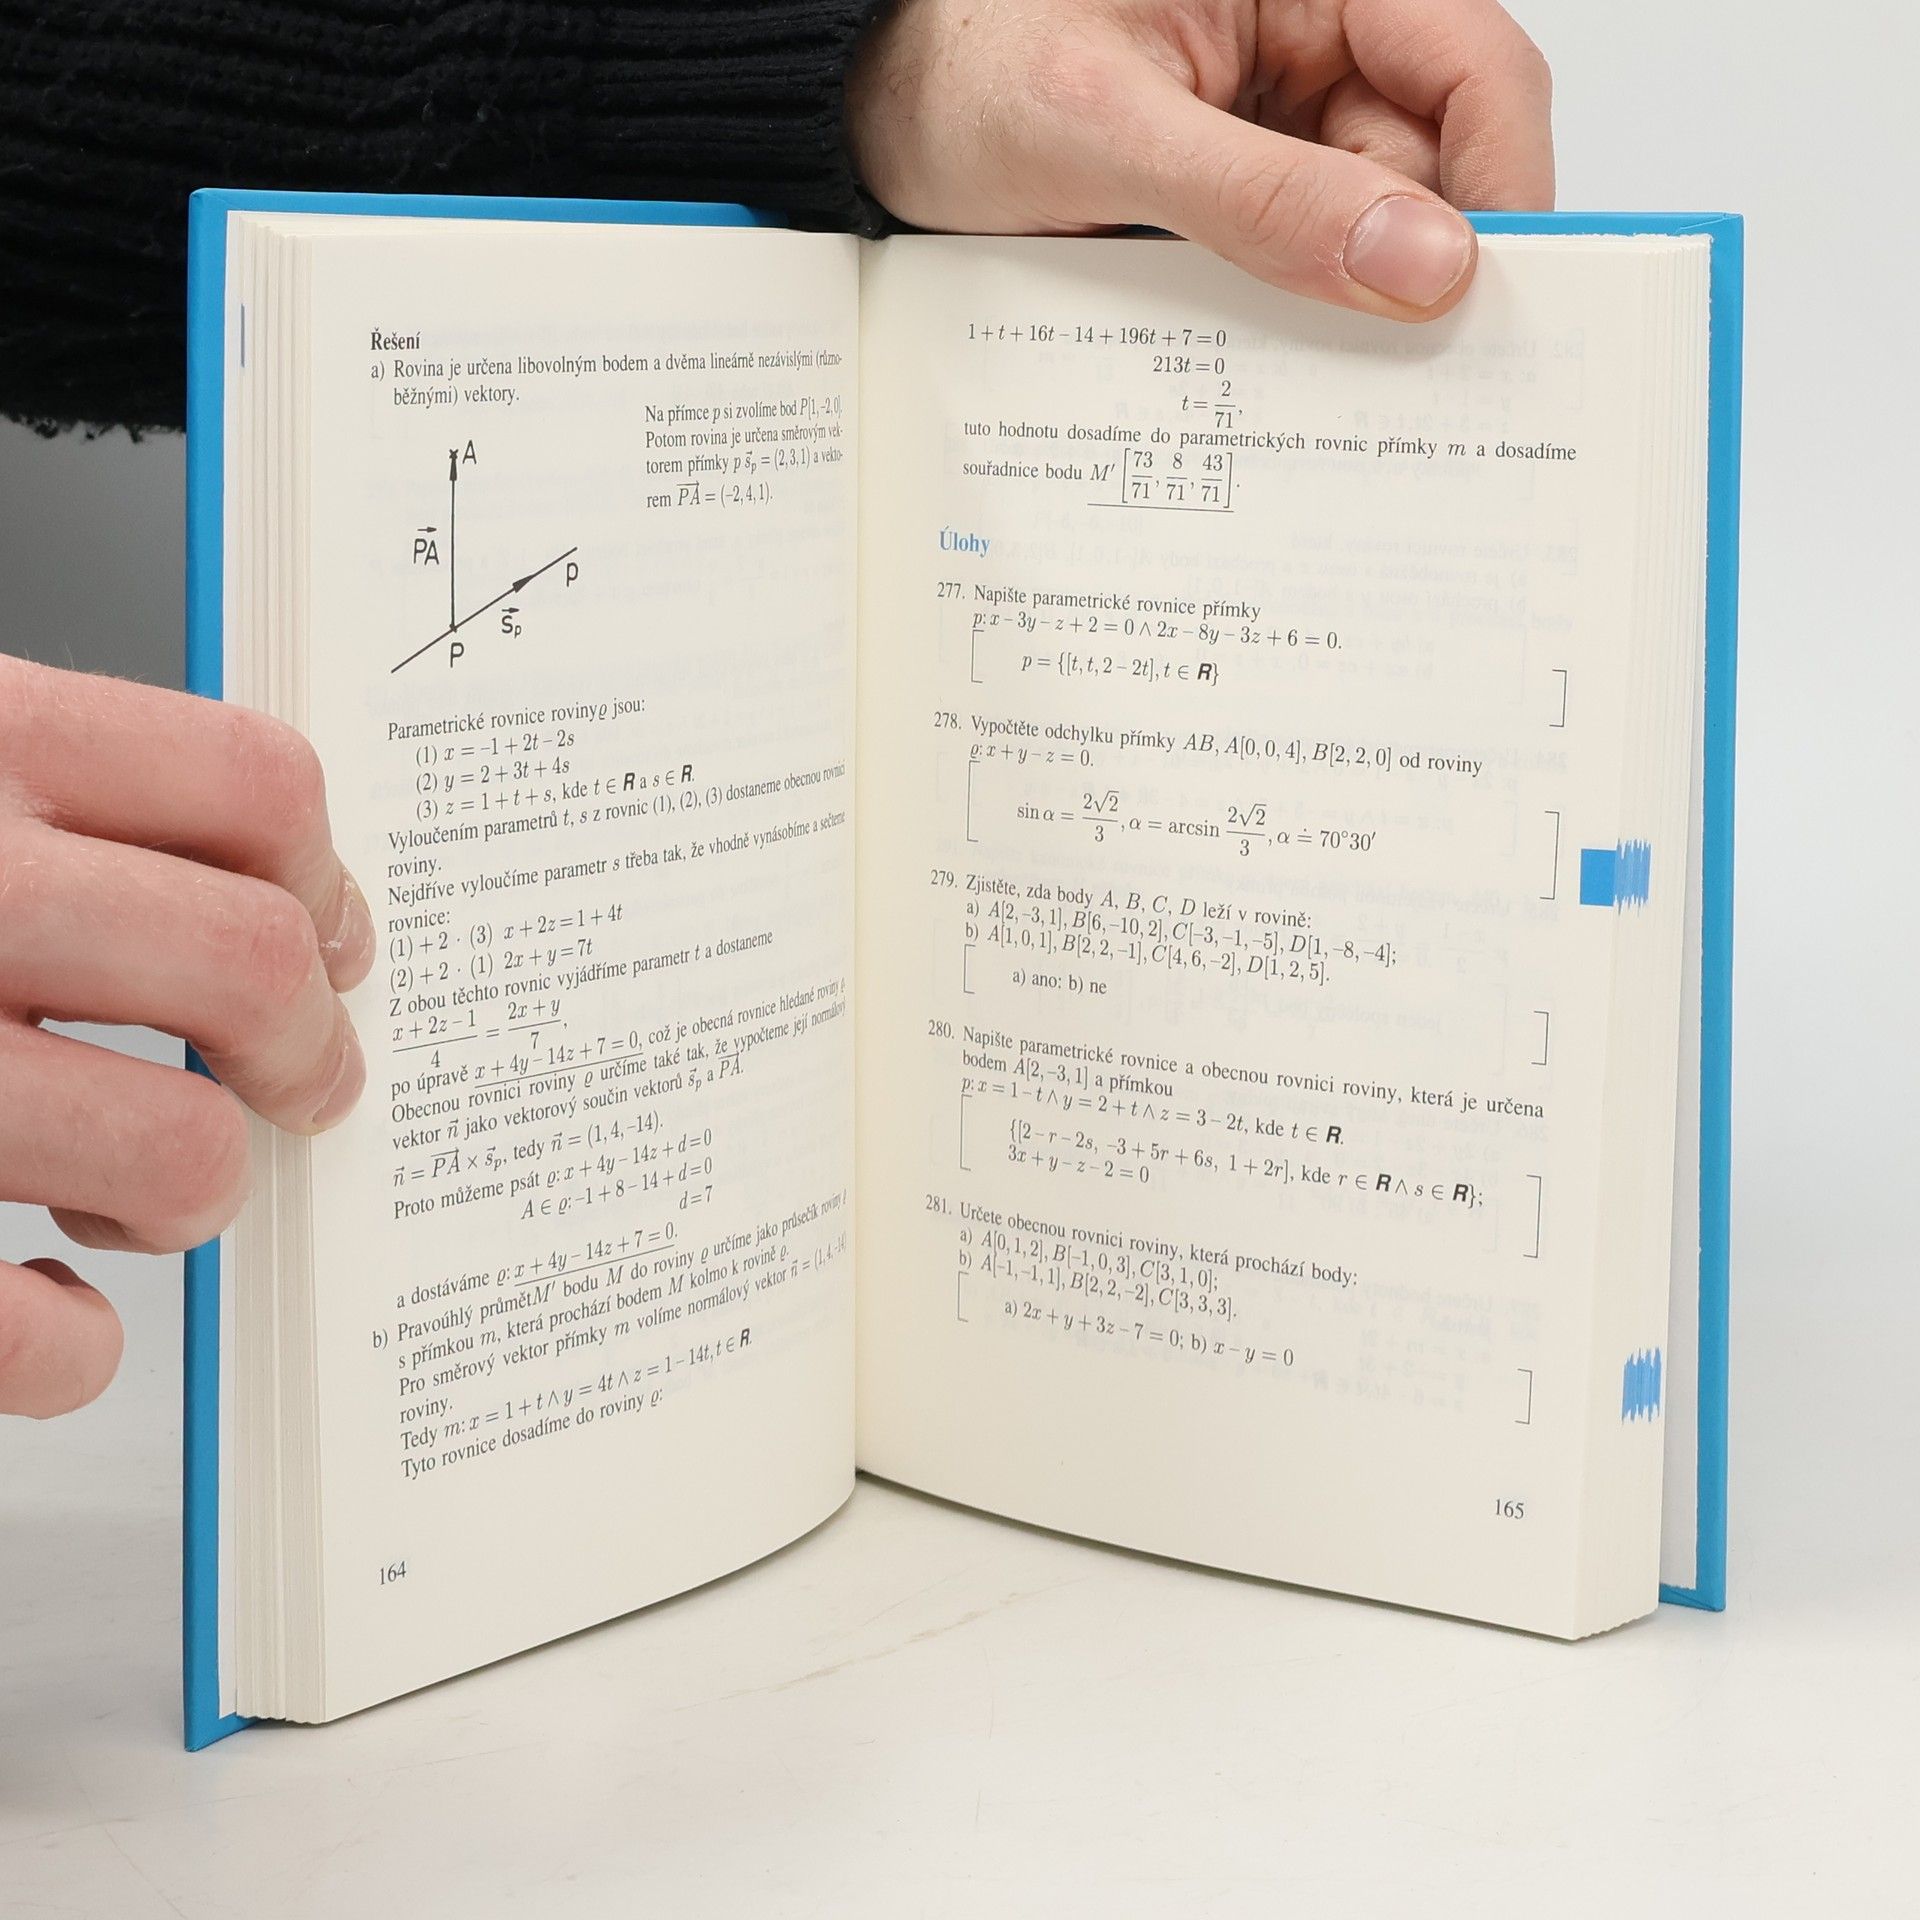 Řešení
a) Rovina je určena libovolným bodem a dvěma lineárně nezávislými (různo-
běžnými) vektory.
Na přímce p si zvolíme bod P[1,–2,0].
Potom rovina je určena směrovým vek-
torem přímky p s⃗ₚ = (2,3,1) a vekto-
rem PA⃗ = (–2,4,1).
A
PA⃗
p
s⃗ₚ
P
Parametrické rovnice roviny ϱ jsou:
(1) x = –1 + 2t – 2s
(2) y = 2 + 3t + 4s
(3) z = 1 + t + s, kde t ∈ R a s ∈ R.
Vyloučením parametrů t, s z rovnic (1), (2), (3) dostaneme obecnou rovnici
roviny.
Nejdříve vyloučíme parametr s třeba tak, že vhodně vynásobíme a sečteme
rovnice:
(1) + 2 · (3) x + 2z = 1 + 4t
(2) + 2 · (1) 2x + y = 7t
Z obou těchto rovnic vyjádříme parametr t a dostaneme
(x + 2z – 1)/4 = (2x + y)/7,
po úpravě x + 4y – 14z + 7 = 0, což je obecná rovnice hledané roviny ϱ.
Obecnou rovnici roviny ϱ určíme také tak, že vypočteme její normálový
vektor n⃗ jako vektorový součin vektorů s⃗ₚ a PA⃗.
n⃗ = PA⃗ × s⃗ₚ, tedy n⃗ = (1, 4, –14).
Proto můžeme psát ϱ: x + 4y – 14z + d = 0
A ∈ ϱ: –1 + 8 – 14 + d = 0
d = 7
a dostáváme ϱ: x + 4y – 14z + 7 = 0.
b) Pravoúhlý průmět M′ bodu M do roviny ϱ určíme jako průsečík roviny ϱ
s přímkou m, která prochází bodem M kolmo k rovině ϱ.
Pro směrový vektor přímky m volíme normálový vektor n⃗ = (1, 4, –14)
roviny.
Tedy m: x = 1 + t ∧ y = 4t ∧ z = 1 – 14t, t ∈ R.
Tyto rovnice dosadíme do roviny ϱ:
164
1 + t + 16t – 14 + 196t + 7 = 0
213t = 0
t = 2/71,
tuto hodnotu dosadíme do parametrických rovnic přímky m a dosadíme
souřadnice bodu M′ [73/71, 8/71, 43/71].
Úlohy
277. Napište parametrické rovnice přímky
p: x – 3y – z + 2 = 0 ∧ 2x – 8y – 3z + 6 = 0.
[ p = {[t, t, 2 – 2t], t ∈ R} ]
278. Vypočtěte odchylku přímky AB, A[0, 0, 4], B[2, 2, 0] od roviny
ϱ: x + y – z = 0.
[ sin α = 2√2/3, α = arcsin 2√2/3, α ≐ 70°30′ ]
279. Zjistěte, zda body A, B, C, D leží v rovině:
a) A[2, –3, 1], B[6, –10, 2], C[–3, –1, –5], D[1, –8, –4];
b) A[1, 0, 1], B[2, 2, –1], C[4, 6, –2], D[1, 2, 5].
[ a) ano: b) ne ]
280. Napište parametrické rovnice a obecnou rovnici roviny, která je určena
bodem A[2, –3, 1] a přímkou
p: x = 1 – t ∧ y = 2 + t ∧ z = 3 – 2t, kde t ∈ R.
[ {[2 – r – 2s, –3 + 5r + 6s, 1 + 2r], kde r ∈ R ∧ s ∈ R};
3x + y – z – 2 = 0 ]
281. Určete obecnou rovnici roviny, která prochází body:
a) A[0, 1, 2], B[–1, 0, 3], C[3, 1, 0];
b) A[–1, –1, 1], B[2, 2, –2], C[3, 3, 3].
[ a) 2x + y + 3z – 7 = 0; b) x – y = 0 ]
165